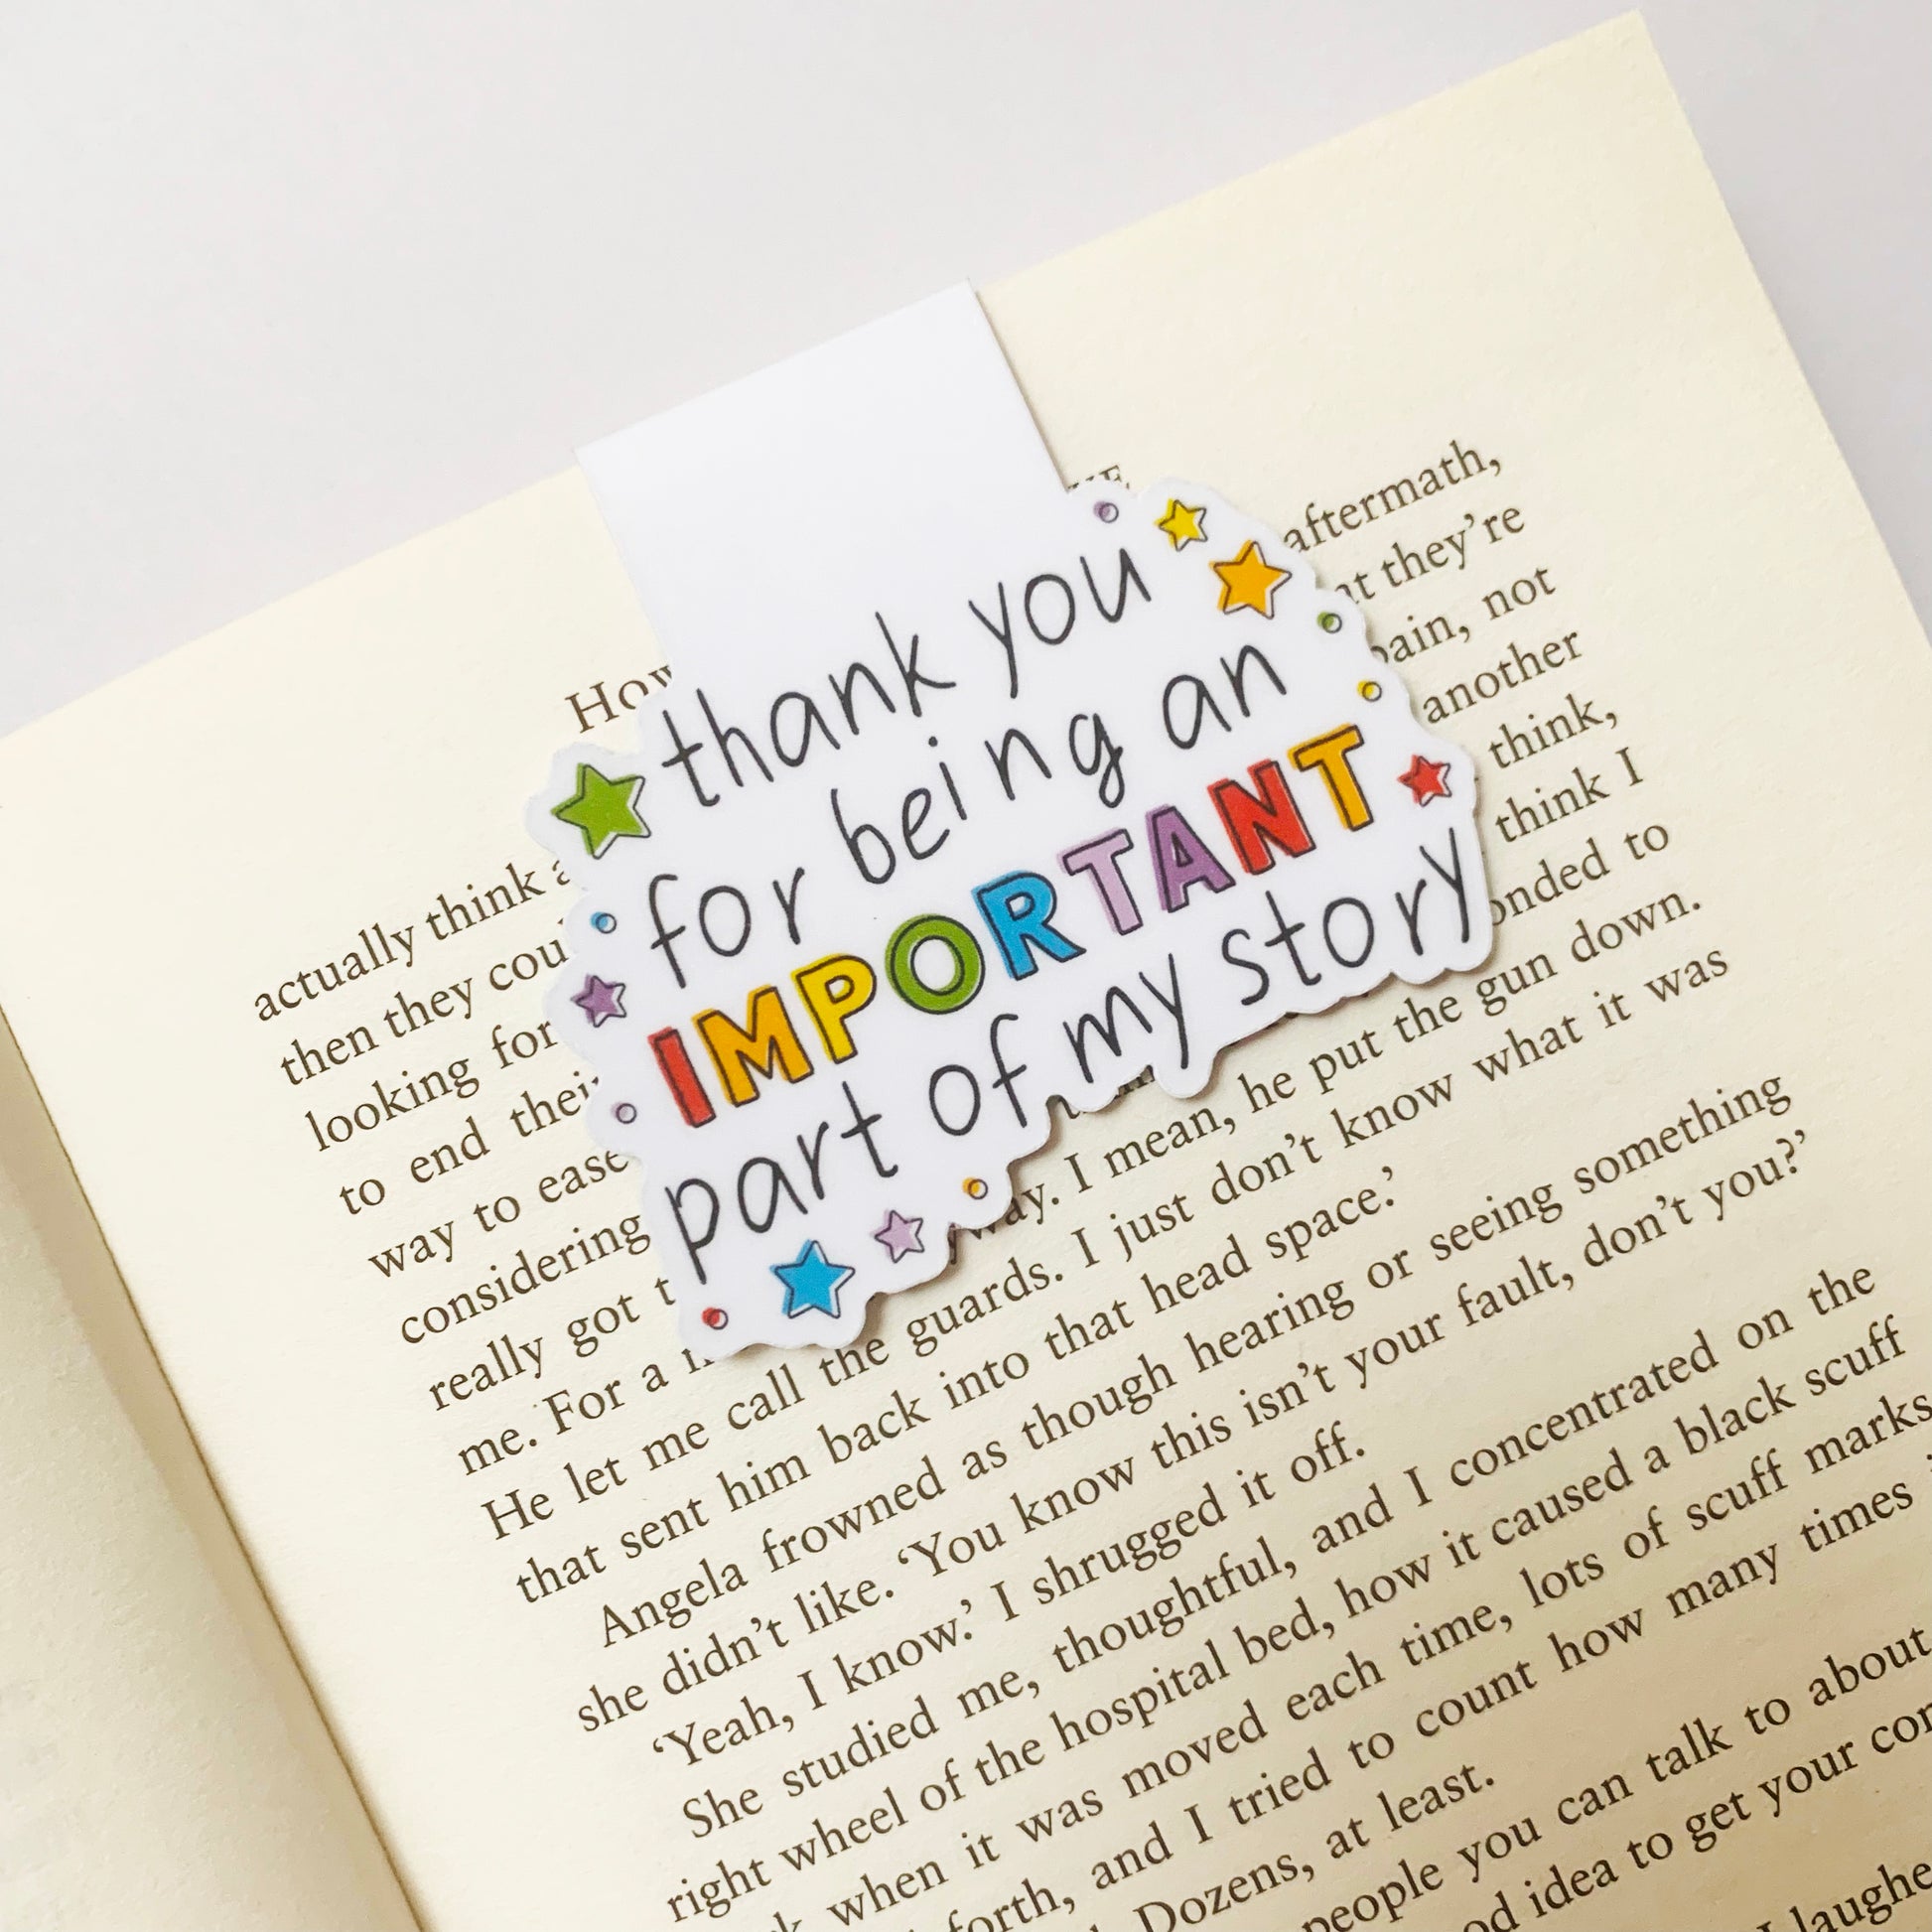 thank you
for being an
IMPORTANT
part of my story
aftermath,
they're
not
actually think
another
then they
think,
looking for
think I
to end
to
way to ease
down.
considering
really got
me. For a
way. I mean, he put the gun down.
He let me call the guards. I just don't know what it was
that sent him back into that head space.'
Angela frowned as though hearing or seeing something
she didn't like. 'You know this isn't your fault, don't you?'
'Yeah, I know.' I shrugged it off.
She studied me, thoughtful, and I concentrated on the
right wheel of the hospital bed, how it caused a black scuff
when it was moved each time, lots of scuff marks
forth, and I tried to count how many times
Dozens, at least.
people you can talk to about
idea to get your